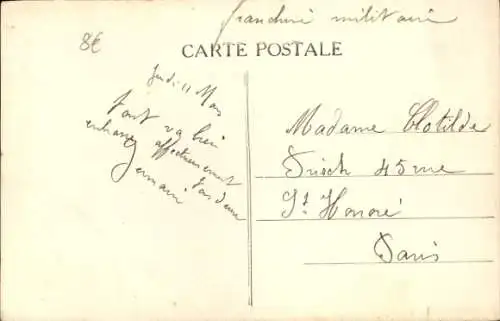 franchise militaire
8€
CARTE POSTALE
Jeudi 11 Mars
tout va bien
affectueusement
Germain
Madame Clotilde
Frisch 45 rue
St. Honoré
Paris